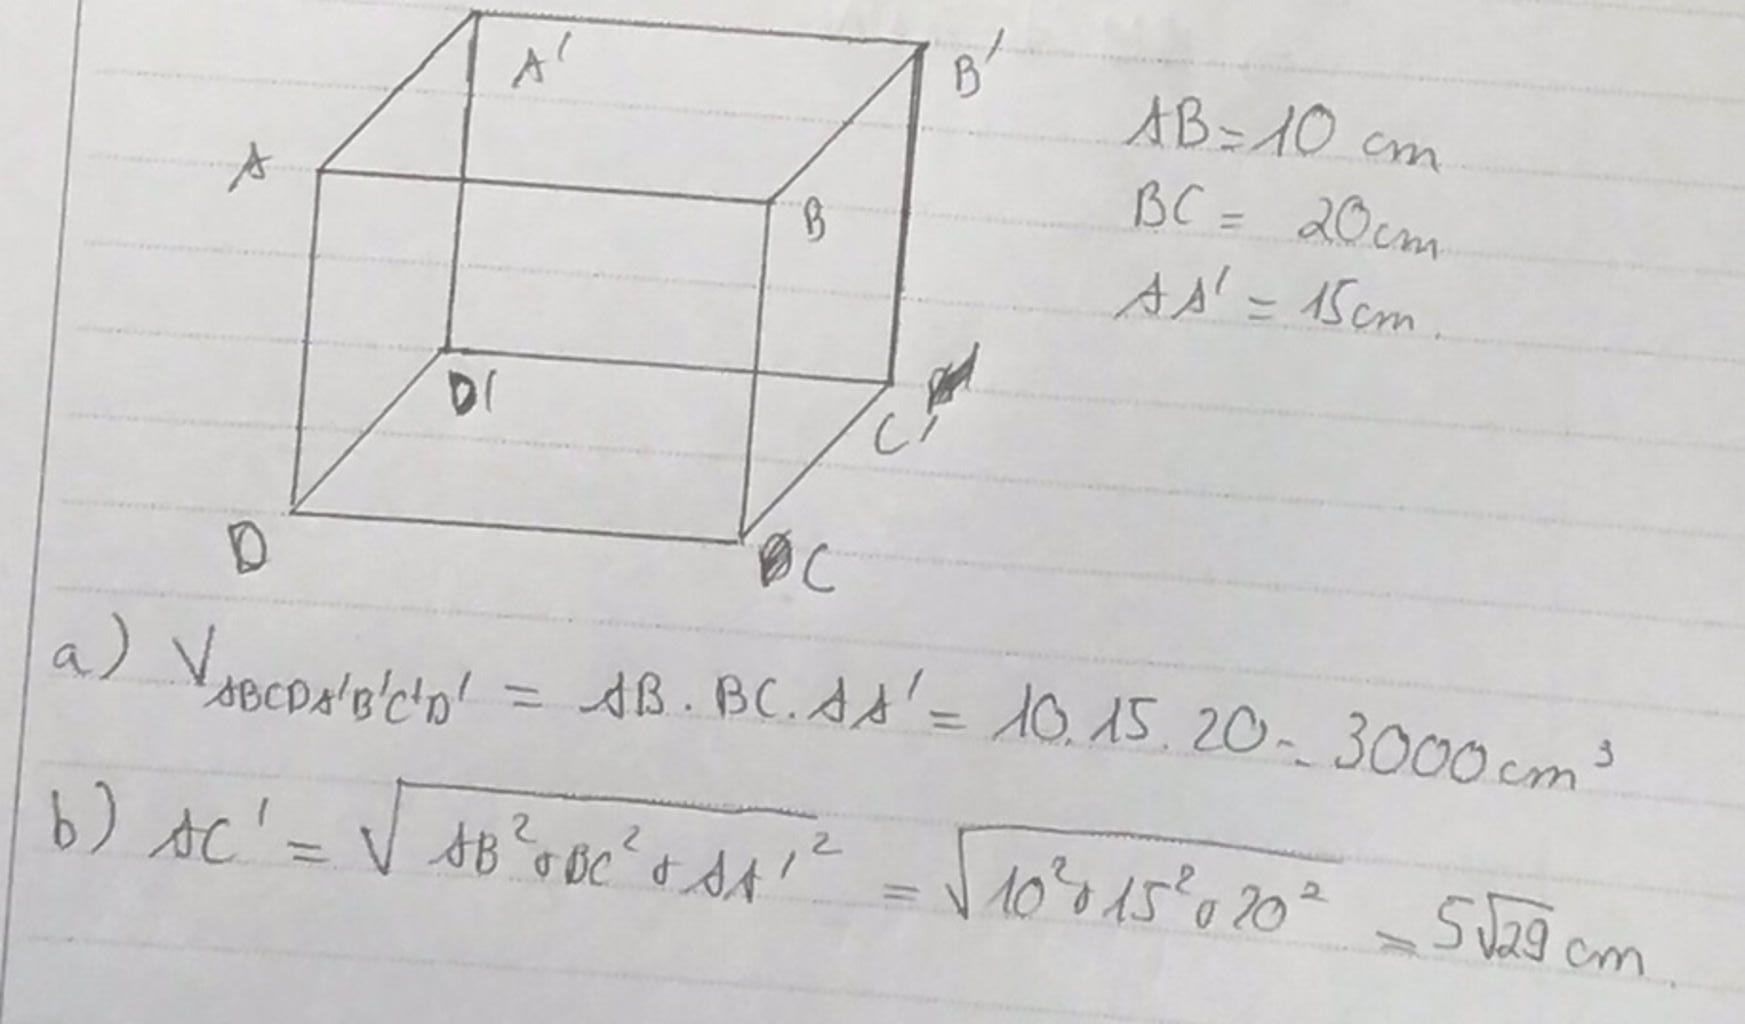 A'
B'
A
B
AB = 10 cm
BC = 20cm
AA' = 15cm.
D'
C'
D
C
a) V_ABCDA'B'C'D' = AB . BC . AA' = 10 . 15 . 20 = 3000 cm³
b) AC' = √(AB² + BC² + AA'²) = √(10² + 15² + 20²) = 5√29 cm